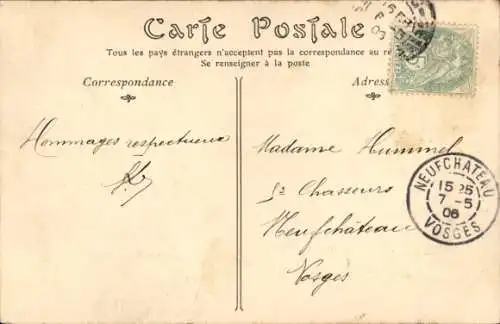 Carte Postale
Tous les pays étrangers n'acceptent pas la correspondance au
Se renseigner à la poste
Correspondance
Hommages respectueux
Madame Hummel
Chasseurs
Neufchâteau
Vosges
NEUFCHATEAU
15 25
7 - 5
06
VOSGES